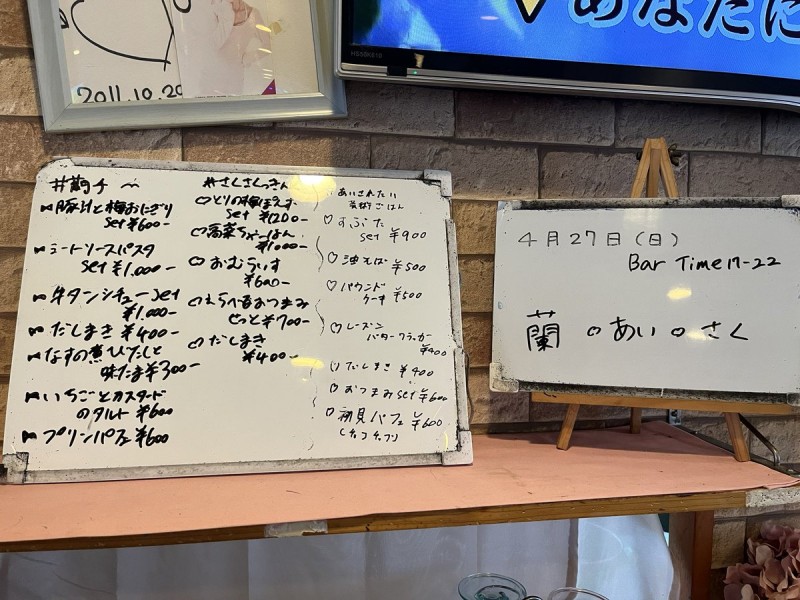 2011.10.20
あなたに
豚汁と梅おにぎり
set ¥600-
ミートソースパスタ
set ¥1.000-
牛タンシチューset
¥1.000-
だしまき ¥400-
なすの煮びたしと
味たま¥300-
いちごとカスタード
のタルト ¥600
プリンパフェ ¥600
#さくさくっきん
♡とりの梅
set ¥1200-
♡高菜ちゃーはん
¥1000-
♡おむらいす
¥600-
♡えらべるおつまみ
せっと¥700-
♡だしまき
¥400-
あいされたい
ごはん
♡すぶた
set ¥900
♡油そば ¥500
♡パウンド
ケーキ ¥500
♡レーズン
バタークラッカー
¥400
♡だしまき ¥400
♡おつまみset ¥600
♡初見パフェ ¥600
(チュプチュプリ)
4月27日(日)
Bar Time 17-22
蘭 ○あい○ さく